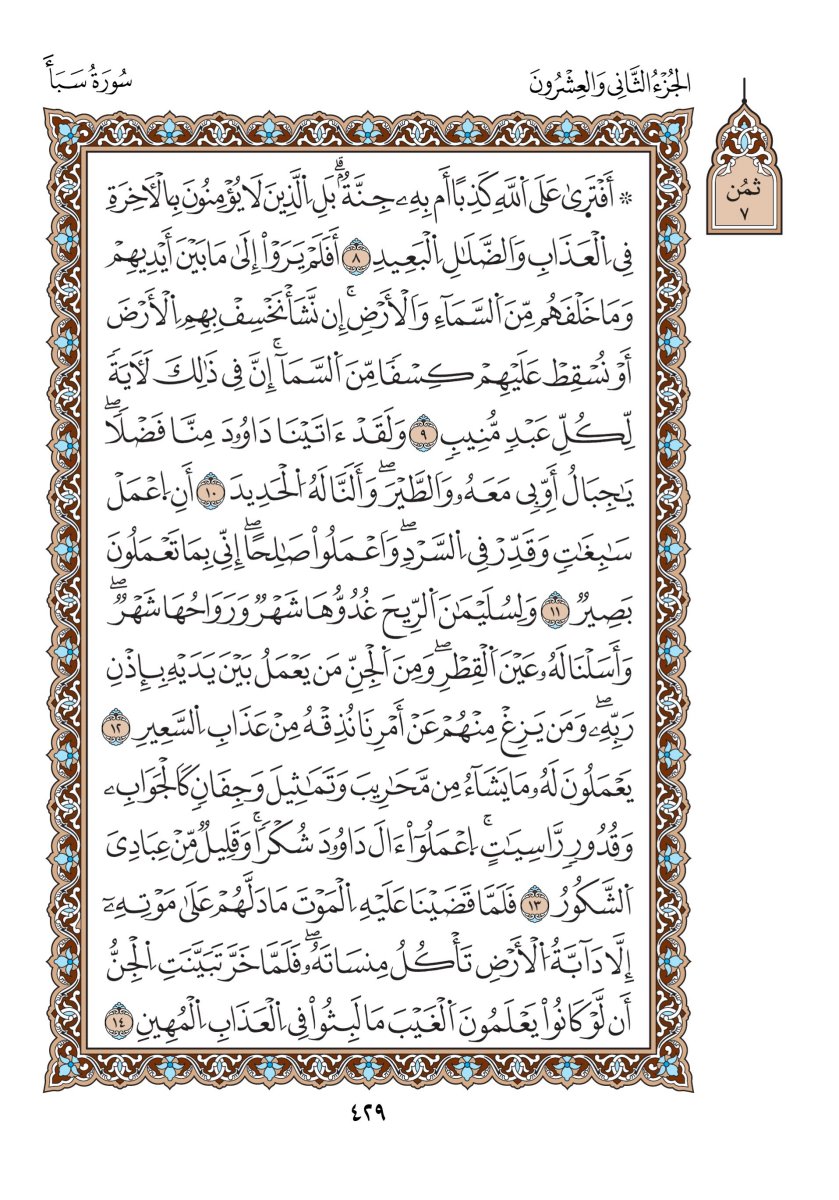 سُورَةُ سَبَأٍ
الجُزْءُ الثَّانِي وَالعِشْرُونَ
ثُمُن
٧
۞ أَفْتَرِىٰ عَلَى اَللَّهِ كَذِبًا أَم بِهِۦ جِنَّةُۢۗ بَلِ اِلَّذِينَ لَا يُؤْمِنُونَ بِالْأَخِرَةِ
فِي اِلْعَذَابِ وَالضَّلَٰلِ اِلْبَعِيدِ ٨ أَفَلَمْ يَرَوْاْ إِلَىٰ مَا بَيْنَ أَيْدِيهِمْ
وَمَا خَلْفَهُم مِّنَ اَلسَّمَآءِ وَالْأَرْضِۚ إِن نَّشَأْ نَخْسِفْ بِهِمِ اِلْأَرْضَ
أَوْ نُسْقِطْ عَلَيْهِمْ كِسْفًا مِّنَ اَلسَّمَآۚ إِنَّ فِي ذَٰلِكَ لَأٓيَةً
لِّكُلِّ عَبْدٍ مُّنِيبٍ ٩ وَلَقَدْ ءَاتَيْنَا دَاوُۥدَ مِنَّا فَضْلًاۖ
يَٰجِبَالُ أَوِّبِي مَعَهُۥ وَالطَّيْرَۖ وَأَلَنَّا لَهُ اُلْحَدِيدَ ١٠ أَنِ اِعْمَلْ
سَٰبِغَٰتٍ وَقَدِّرْ فِي اِلسَّرْدِۖ وَاَعْمَلُواْ صَٰلِحًاۖ إِنِّي بِمَا تَعْمَلُونَ
بَصِيرٌ ١١ وَلِسُلَيْمَٰنَ اَلرِّيحَ غُدُوُّهَا شَهْرٌ وَرَوَاحُهَا شَهْرٌۖ
وَأَسَلْنَا لَهُۥ عَيْنَ اَلْقِطْرِۖ وَمِنَ اَلْجِنِّ مَن يَعْمَلُ بَيْنَ يَدَيْهِ بِإِذْنِ
رَبِّهِۦۖ وَمَن يَزِغْ مِنْهُمْ عَنْ أَمْرِنَا نُذِقْهُ مِنْ عَذَابِ اِلسَّعِيرِ ١٢
يَعْمَلُونَ لَهُۥ مَا يَشَآءُ مِن مَّحَٰرِيبَ وَتَمَٰثِيلَ وَجِفَانٍ كَالْجَوَابِۦ
وَقُدُورٍ رَّاسِيَٰتٍۚ اِعْمَلُوٓاْ ءَالَ دَاوُۥدَ شُكْرًاۚ وَقَلِيلٌ مِّنْ عِبَادِيَ
اَلشَّكُورُ ١٣ فَلَمَّا قَضَيْنَا عَلَيْهِ اِلْمَوْتَ مَا دَلَّهُمْ عَلَىٰ مَوْتِهِۦٓ
إِلَّا دَآبَّةُ اُلْأَرْضِ تَأْكُلُ مِنسَاتَهُۥۖ فَلَمَّا خَرَّ تَبَيَّنَتِ اِلْجِنُّ
أَن لَّوْ كَانُواْ يَعْلَمُونَ اَلْغَيْبَ مَا لَبِثُواْ فِي اِلْعَذَابِ اِلْمُهِينِ ١٤
٤٢٩